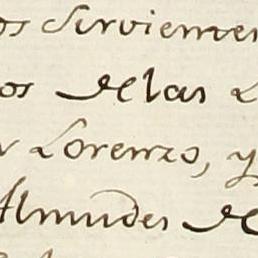 os Sirvientes
os delas L
Lorenzo, y
Almudes de